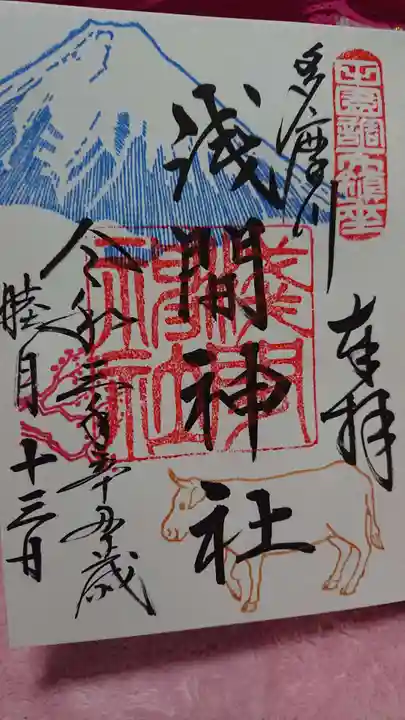 奉拝
多摩川
浅間神社
令和三年辛丑歳
睦月十三日
浅間神社